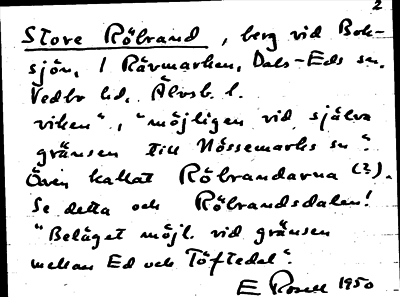 2
Store Röbrand, berg vid Bok-
sjön, i Rävmarken, Dals-Eds sn.
Vedbo hd. Älvsb. l.
viken", "möjligen vid själva
gränsen till Nössemarks sn".
Även kallat Röbrandarna (?).
Se detta och Röbrandsdalen!
"Beläget möjl. vid gränsen
mellan Ed och Töftedal".
E Rosell 1950